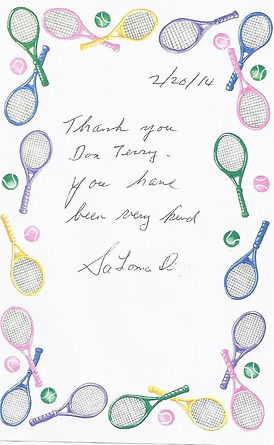 2/20/14
Thank you
Don Terry.
You have
been very kind